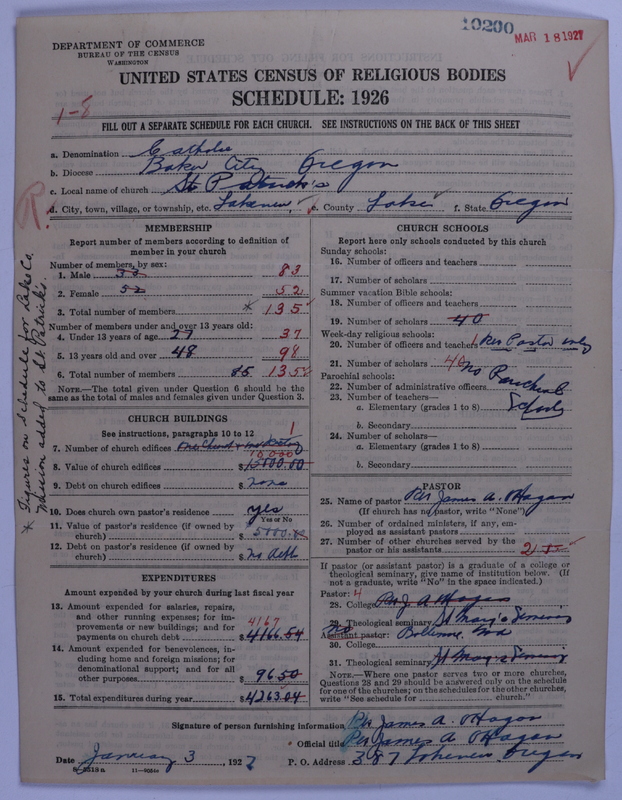 10200
MAR 18 1927
DEPARTMENT OF COMMERCE
BUREAU OF THE CENSUS
WASHINGTON
UNITED STATES CENSUS OF RELIGIOUS BODIES
SCHEDULE: 1926
1-8
FILL OUT A SEPARATE SCHEDULE FOR EACH CHURCH. SEE INSTRUCTIONS ON THE BACK OF THIS SHEET
a. Denomination Catholic
b. Diocese Baker City Oregon
c. Local name of church St Patrick's
R.
d. City, town, village, or township, etc. Lakeview e. County Lake f. State Oregon
MEMBERSHIP
Report number of members according to definition of
member in your church
Number of members, by sex:
1. Male 33 83
2. Female 52 52
3. Total number of members * 135
Number of members under and over 13 years old:
4. Under 13 years of age 27 37
5. 13 years old and over 48 98
6. Total number of members 85 135
NOTE.—The total given under Question 6 should be the
same as the total of males and females given under Question 3.
* Figures on schedule for Lake Co.
Mission added to St. Patrick's.
CHURCH BUILDINGS
See instructions, paragraphs 10 to 12
7. Number of church edifices One Church 1
8. Value of church edifices $ 15000.00 10,000
9. Debt on church edifices $ none
10. Does church own pastor's residence yes
Yes or No
11. Value of pastor's residence (if owned by
church) $ 5000.
12. Debt on pastor's residence (if owned by
church) $ no debt
EXPENDITURES
Amount expended by your church during last fiscal year
13. Amount expended for salaries, repairs,
and other running expenses; for im-
provements or new buildings; and for
payments on church debt $ 4166.54 4167
14. Amount expended for benevolences, in-
cluding home and foreign missions; for
denominational support; and for all
other purposes $ 96.50
15. Total expenditures during year $ 4263.04
CHURCH SCHOOLS
Report here only schools conducted by this church
Sunday schools:
16. Number of officers and teachers
17. Number of scholars
Summer vacation Bible schools:
18. Number of officers and teachers
19. Number of scholars 40
Week-day religious schools:
20. Number of officers and teachers 1 Rev Pastor only
21. Number of scholars 40
Parochial schools: no Parochial
22. Number of administrative officers
23. Number of teachers— Schools
a. Elementary (grades 1 to 8)
b. Secondary
24. Number of scholars—
a. Elementary (grades 1 to 8)
b. Secondary
PASTOR
25. Name of pastor Rev James A. O'Hagan
(If church has no pastor, write "None")
26. Number of ordained ministers, if any, em-
ployed as assistant pastors
27. Number of other churches served by the
pastor or his assistants 2
If pastor (or assistant pastor) is a graduate of a college or
theological seminary, give name of institution below. (If
not a graduate, write "No" in the space indicated.)
Pastor: 4
28. College Rev J. A. O'Hagan
29. Theological seminary St Mary's Seminary
Assistant pastor: Baltimore, Md
30. College
31. Theological seminary St Mary's Seminary
NOTE.—Where one pastor serves two or more churches,
Questions 28 and 29 should be answered only on the schedule
for one of the churches; on the schedules for the other churches,
write "See schedule for church."
Signature of person furnishing information Rev James A. O'Hagan
Official title Rev James A O'Hagan
Date January 3, 1927 P. O. Address 387 Lakeview Oregon
8-5518 a 11-9054a